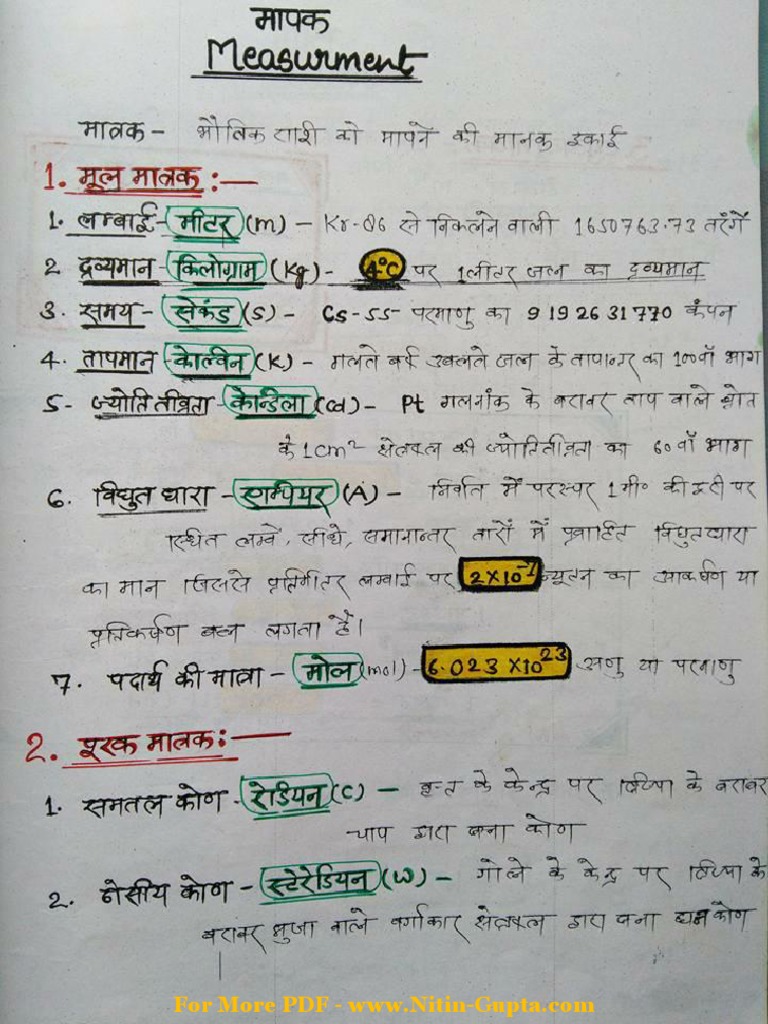 मापक
Measurment
मात्रक - भौतिक राशी को मापने की मानक इकाई
1. मूल मात्रक :—
1. लम्बाई - मीटर (m) - Kr-86 से निकलने वाली 1650763.73 तरंगें
2 द्रव्यमान - किलोग्राम (Kg) - 4°C पर 1लीटर जल का द्रव्यमान
3. समय - सेकंड (s) - Cs-55- परमाणु का 9192631770 कंपन
4. तापमान - केल्विन (K) - गलते बर्फ उबलते जल के तापान्तर का 100वाँ भाग
5- ज्योति तीव्रता - केन्डिला (cd) - Pt गलनांक के बराबर ताप वाले स्रोत
के 1cm² क्षेत्रफल की ज्योतितीव्रता का 60वाँ भाग
6. विधुत धारा - एम्पियर (A) - निर्वात में परस्पर 1मी० की दूरी पर
स्थित लम्बें, सीधे, समानान्तर तारों में प्रवाहित विधुतधारा
का मान जिससे प्रतिमीटर लम्बाई पर 2×10⁻⁷ न्यूटन का आकर्षण या
प्रतिकर्षण बल लगता है।
7. पदार्थ की मात्रा - मोल (mol) - 6.023 ×10²³ अणु या परमाणु
2. पूरक मात्रक :—
1. समतल कोण - रेडियन (c) - वृत्त के केन्द्र पर त्रिज्या के बराबर
चाप द्वारा बना कोण
2. कोण - स्टेरेडियन (ω) - गोले के केन्द्र पर त्रिज्या के
बराबर भुजा वाले वर्गाकार क्षेत्रफल द्वारा बना कोण
For More PDF - www.Nitin-Gupta.com